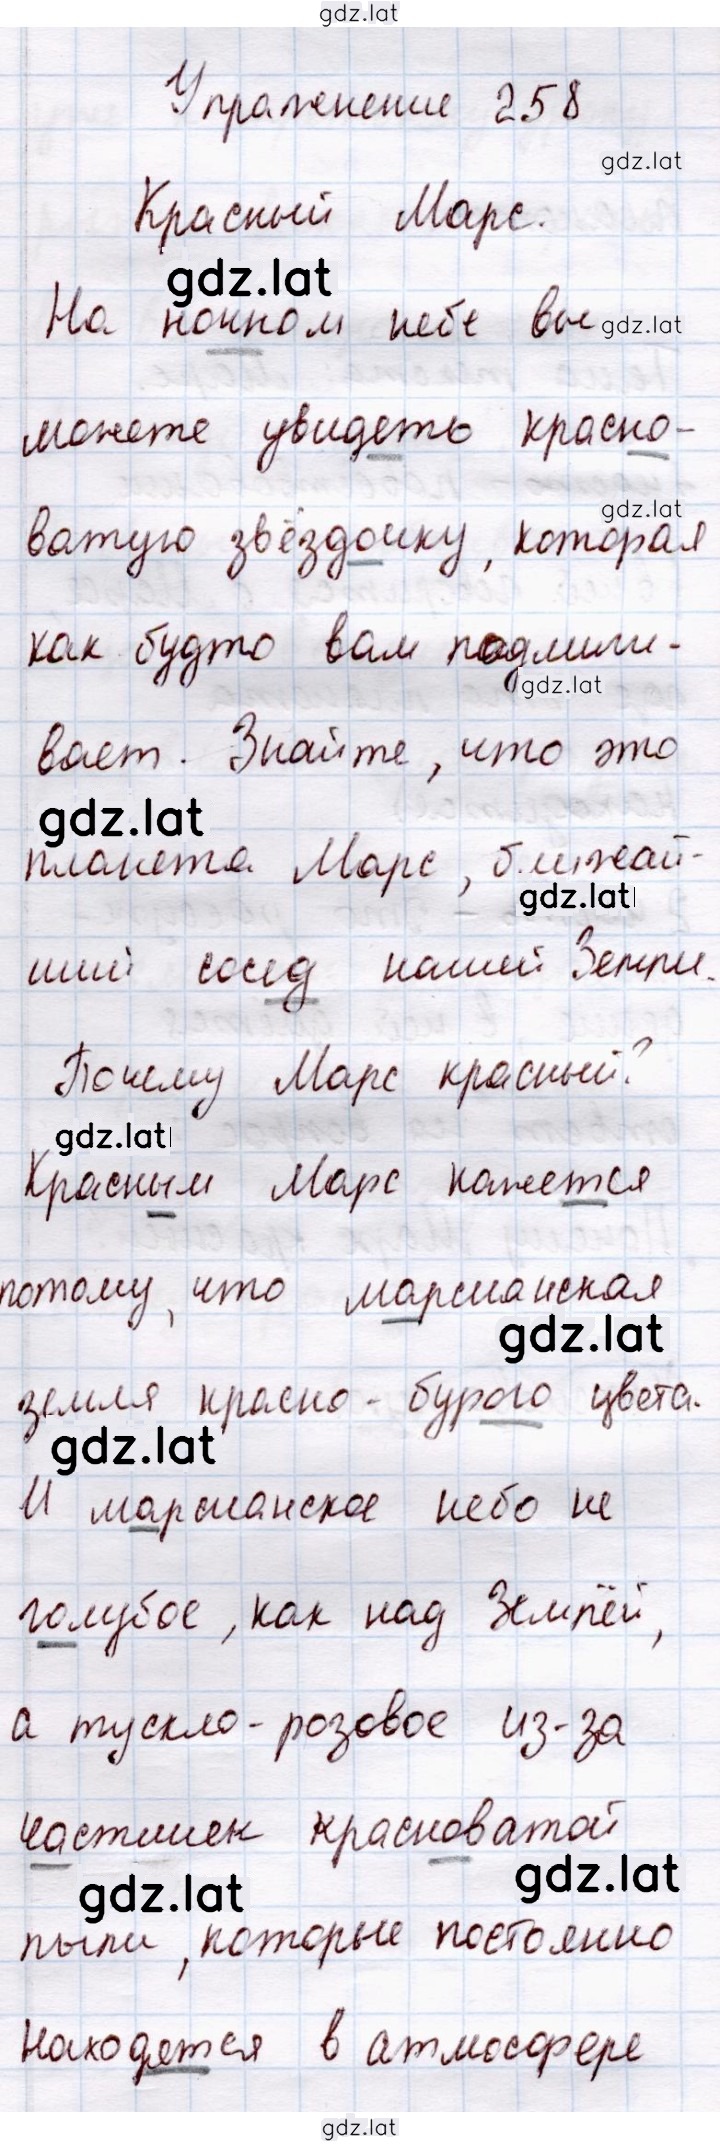 gdz.lat
Упражнение 258
gdz.lat
Красный Марс.
gdz.lat
На ночном небе вы gdz.lat
можете увидеть красно-
gdz.lat
ватую звёздочку, которая
как будто вам подмиги-
gdz.lat
вает. Знайте, что это
gdz.lat
планета Марс, ближай-
gdz.lat
ший сосед нашей Земли.
Почему Марс красный?
gdz.lat
Красным Марс кажется
потому, что марсианская
gdz.lat
земля красно-бурого цвета.
gdz.lat
И марсианское небо не
голубое, как над Землёй,
а тускло-розовое из-за
частичек красноватой
gdz.lat gdz.lat
пыли, которые постоянно
находятся в атмосфере
gdz.lat